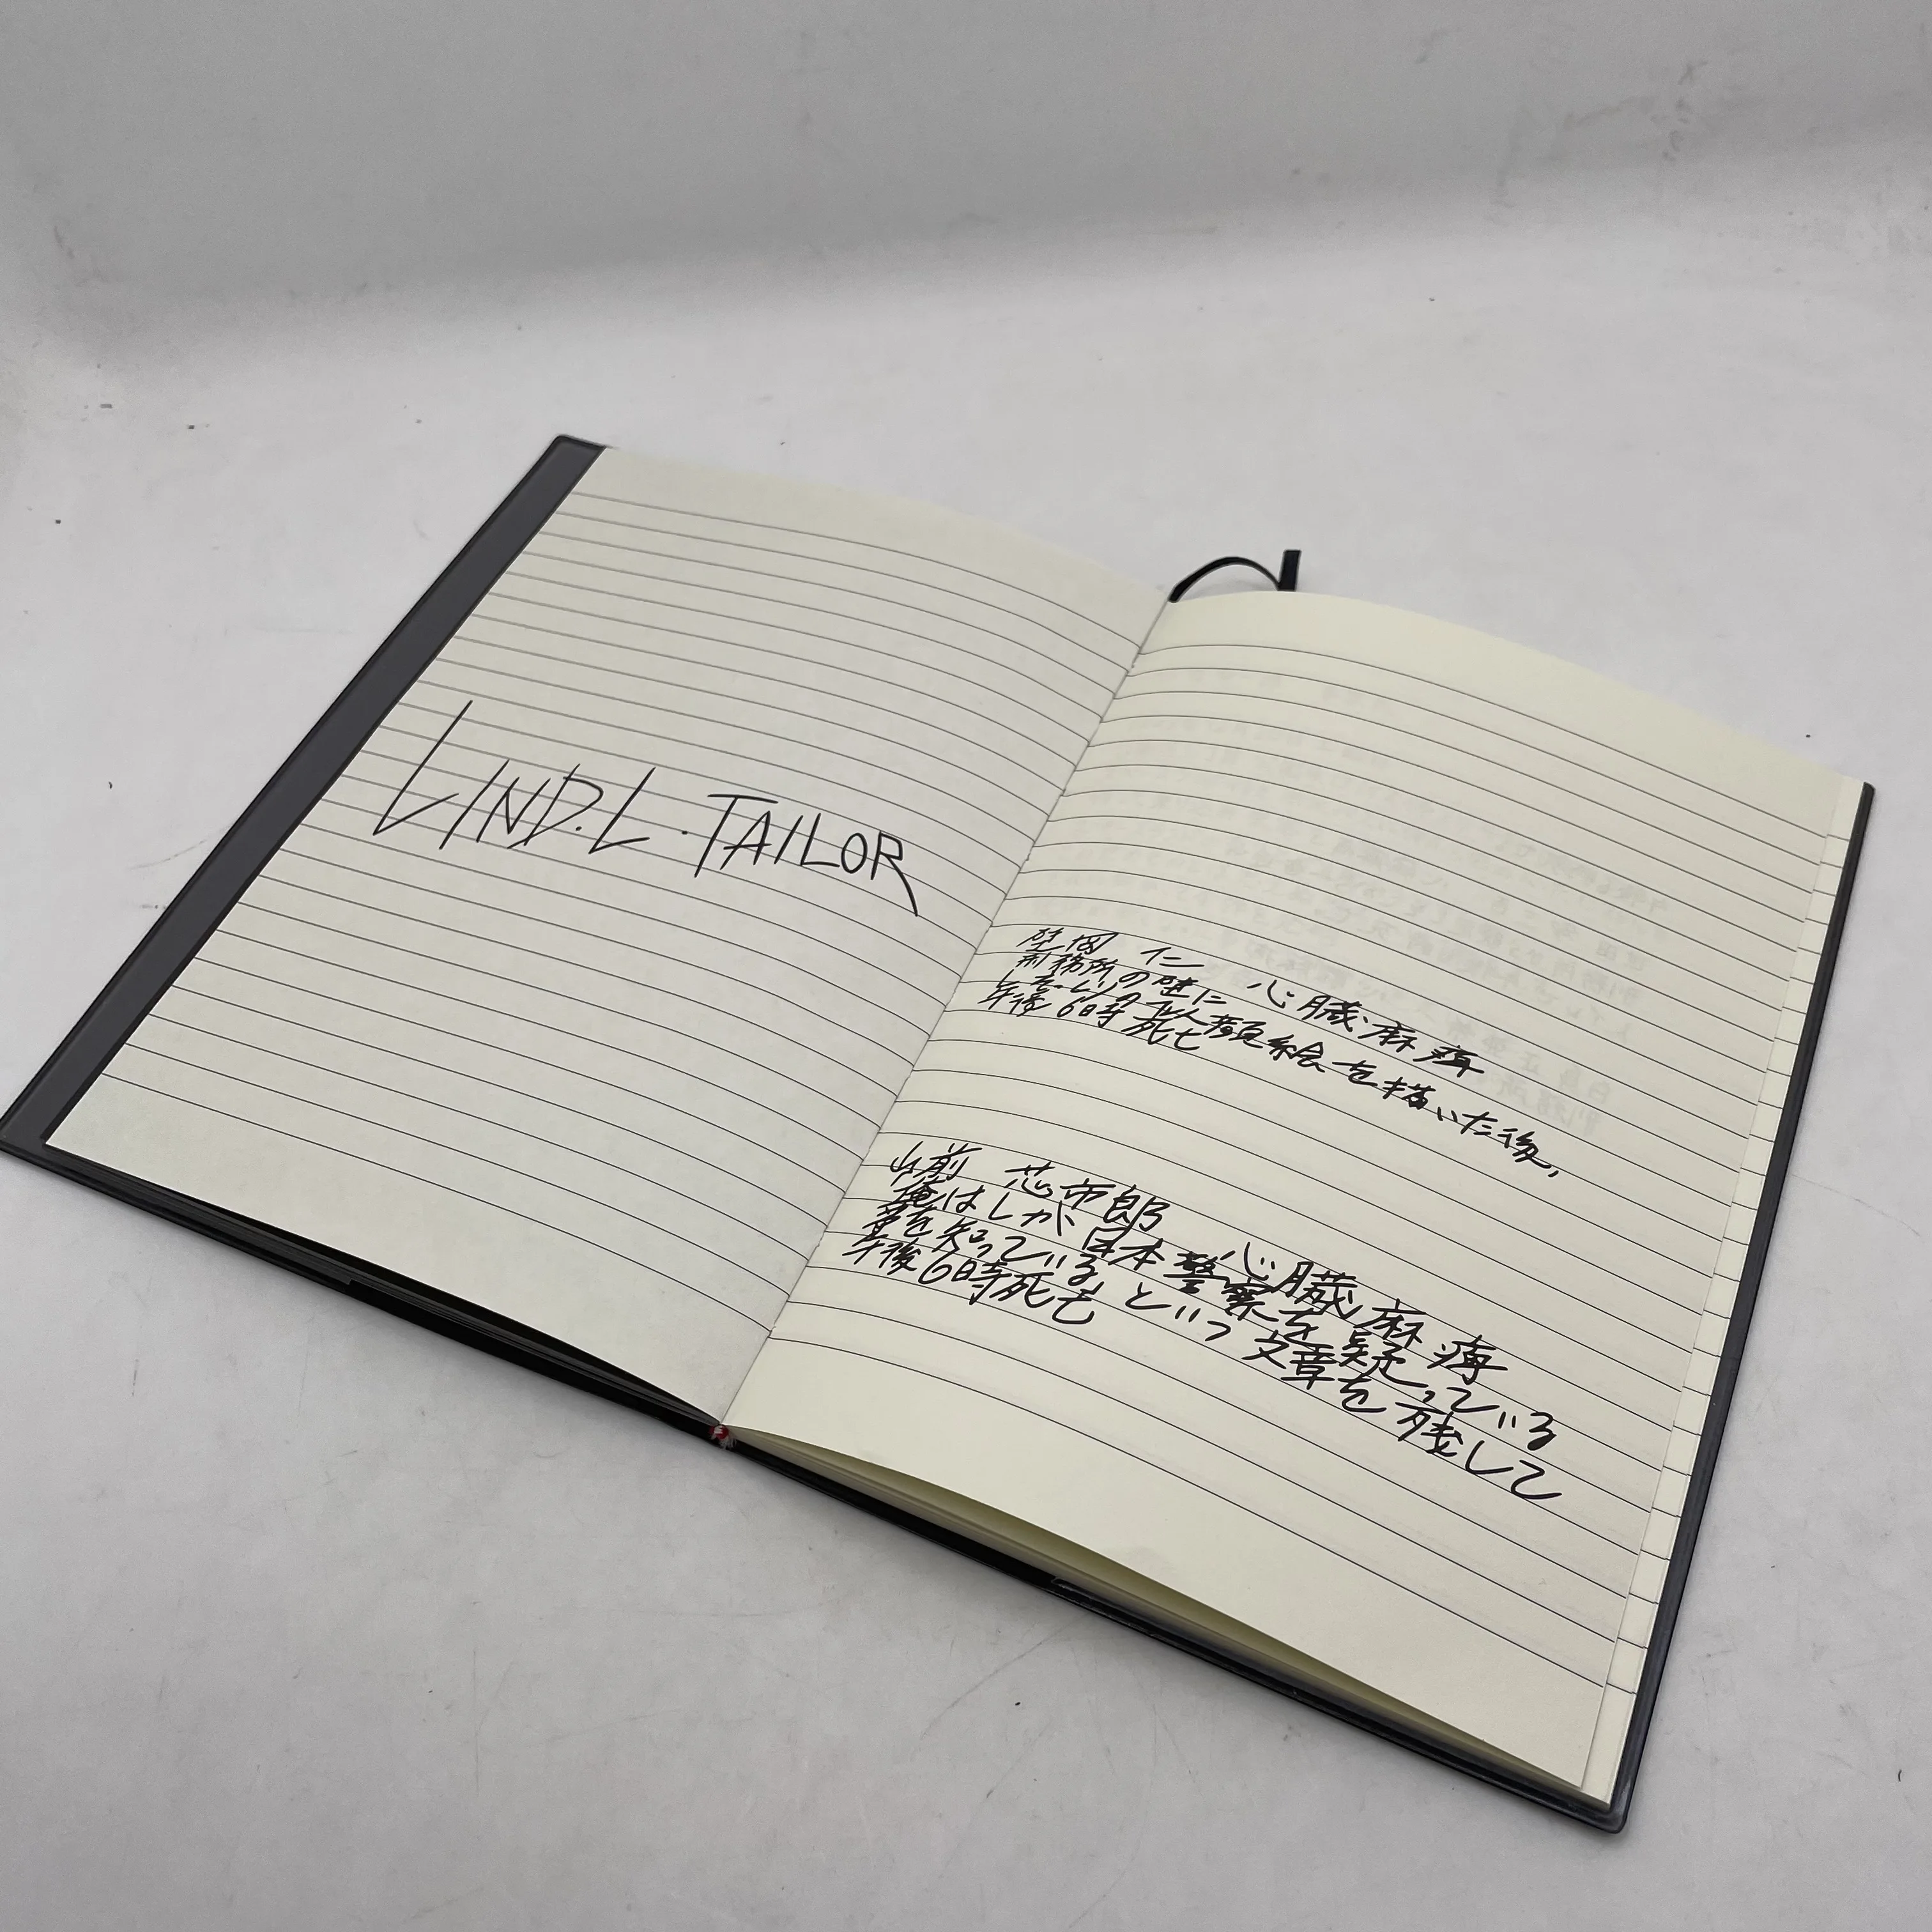 LIND.L.TAILOR
壁岡 仁 心臓麻痺
刑務所の壁に
の似顔絵を描いた後,
午後6時死亡
山前 芯市郎 心臓麻痺
俺はLが日本警察を疑っている
事を知っている,という文章を残して
午後6時死亡